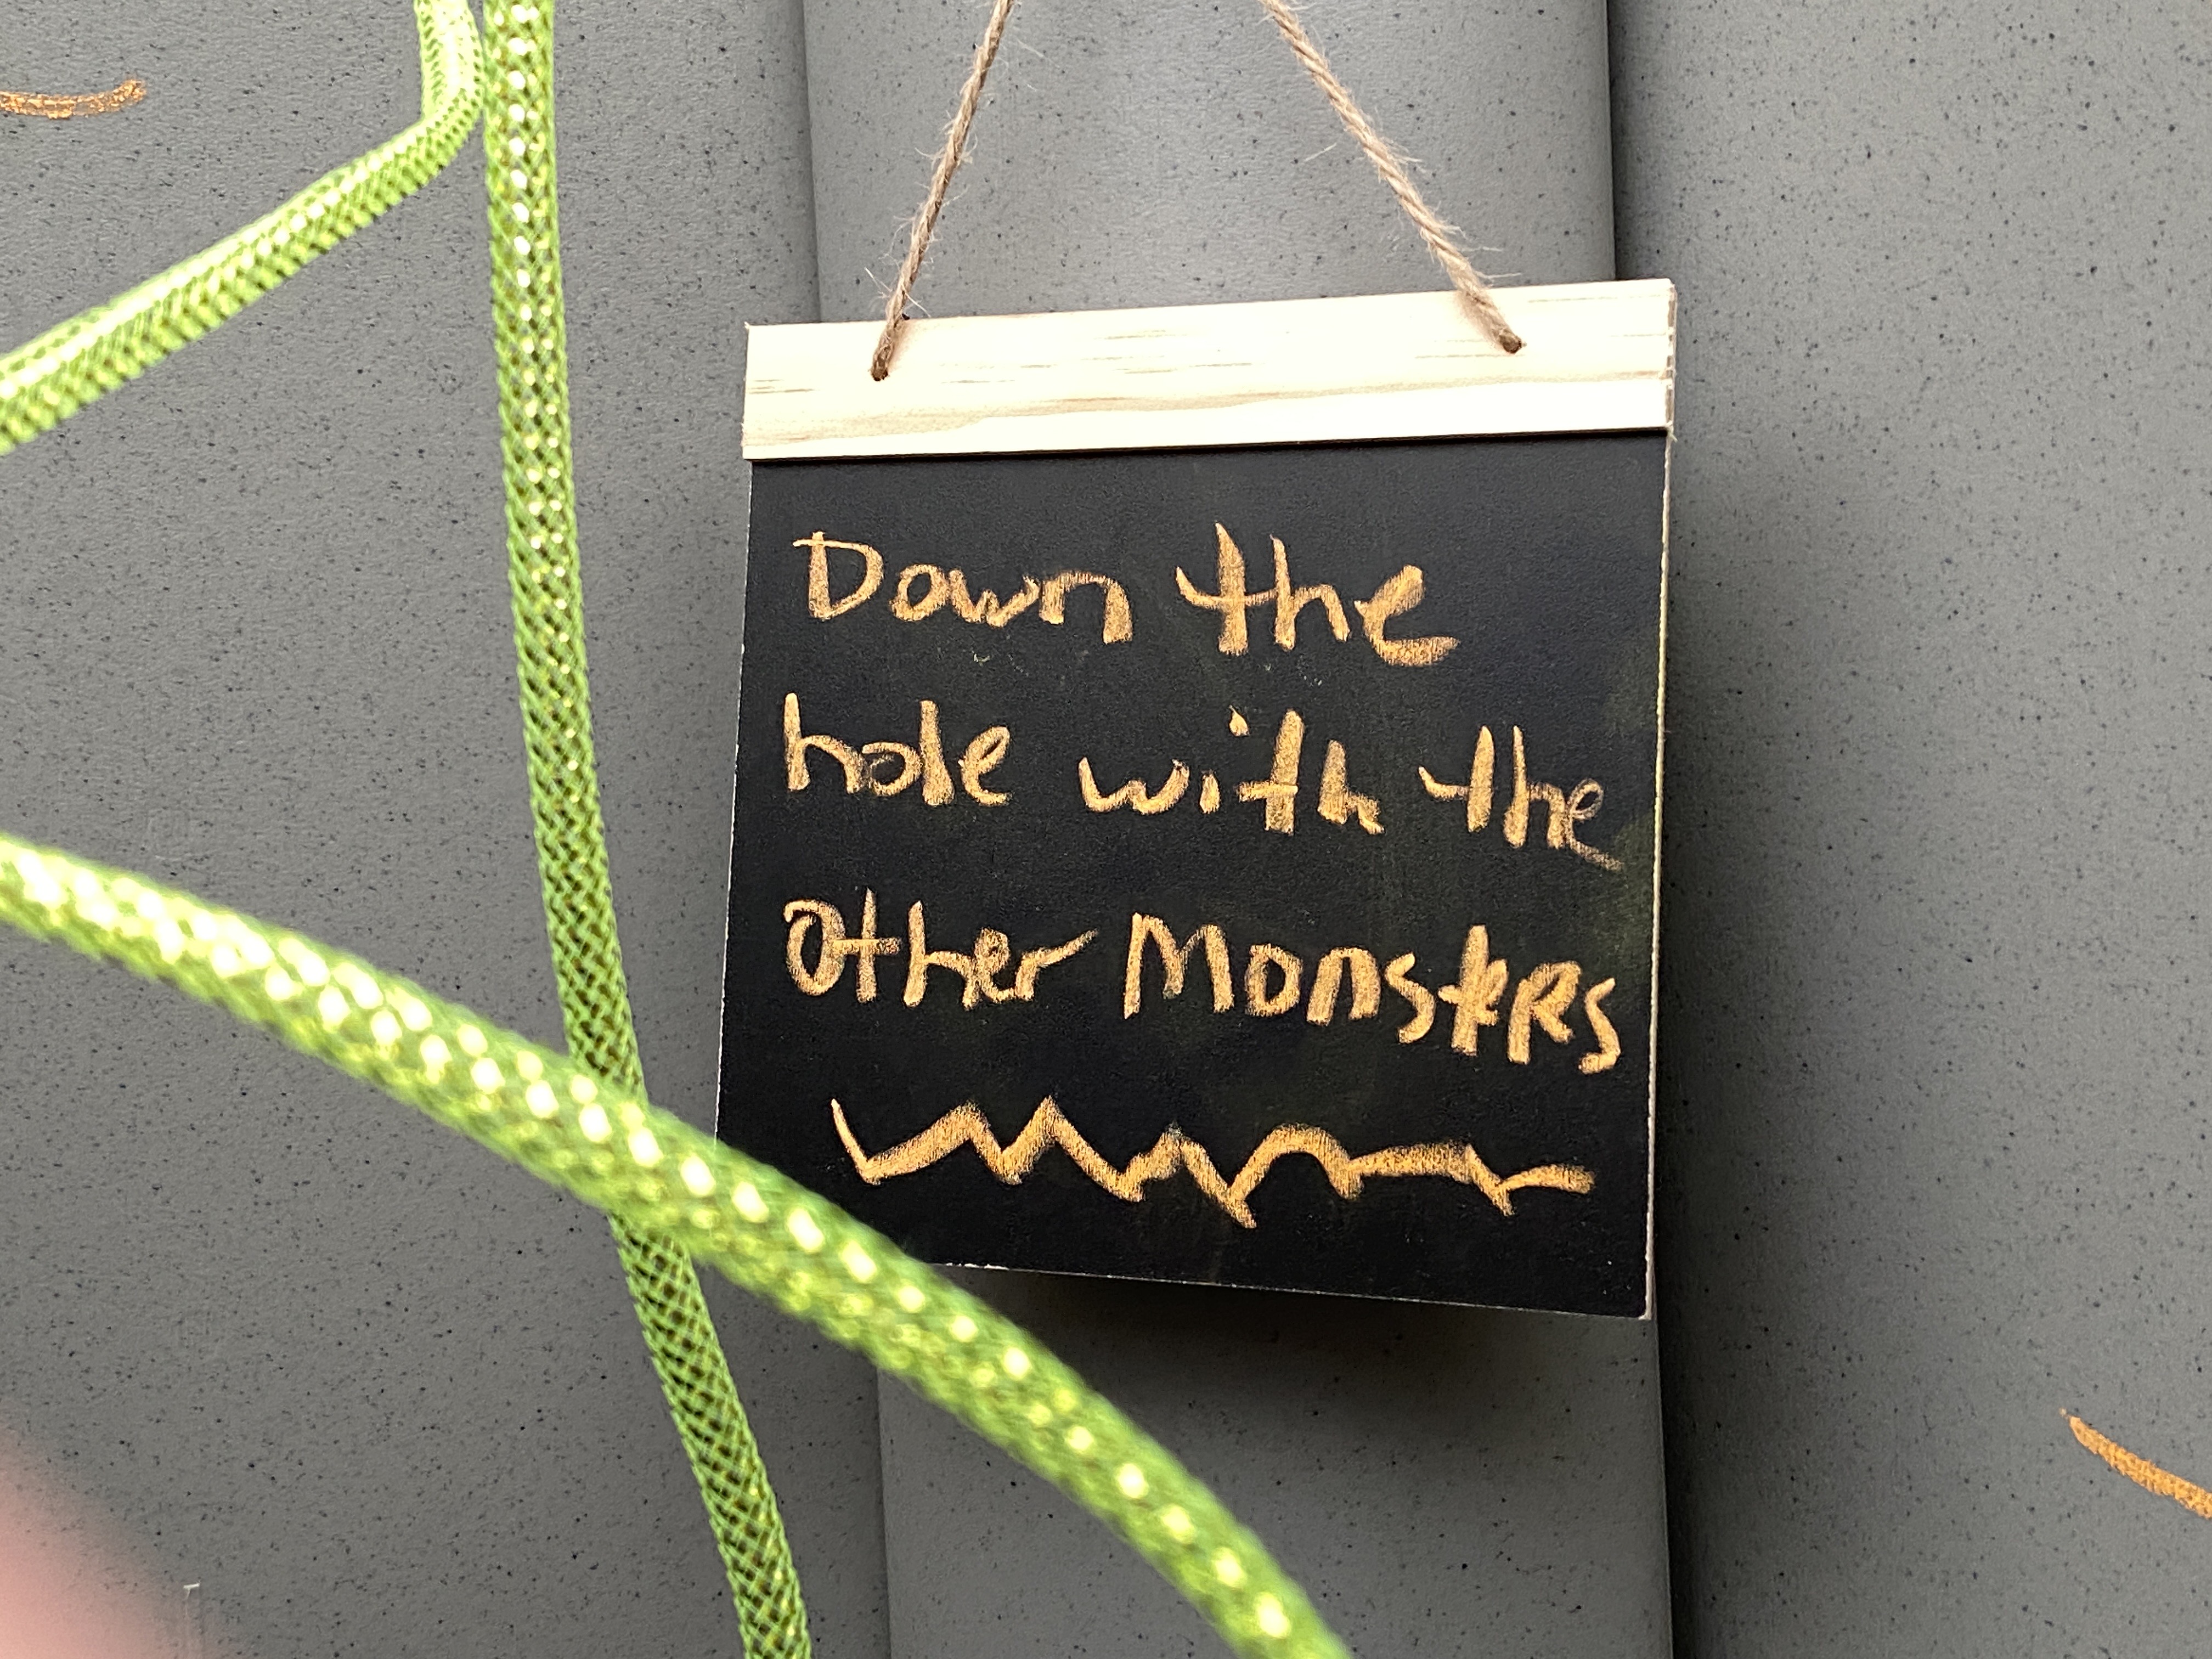 Down the
hole with the
other Monsters